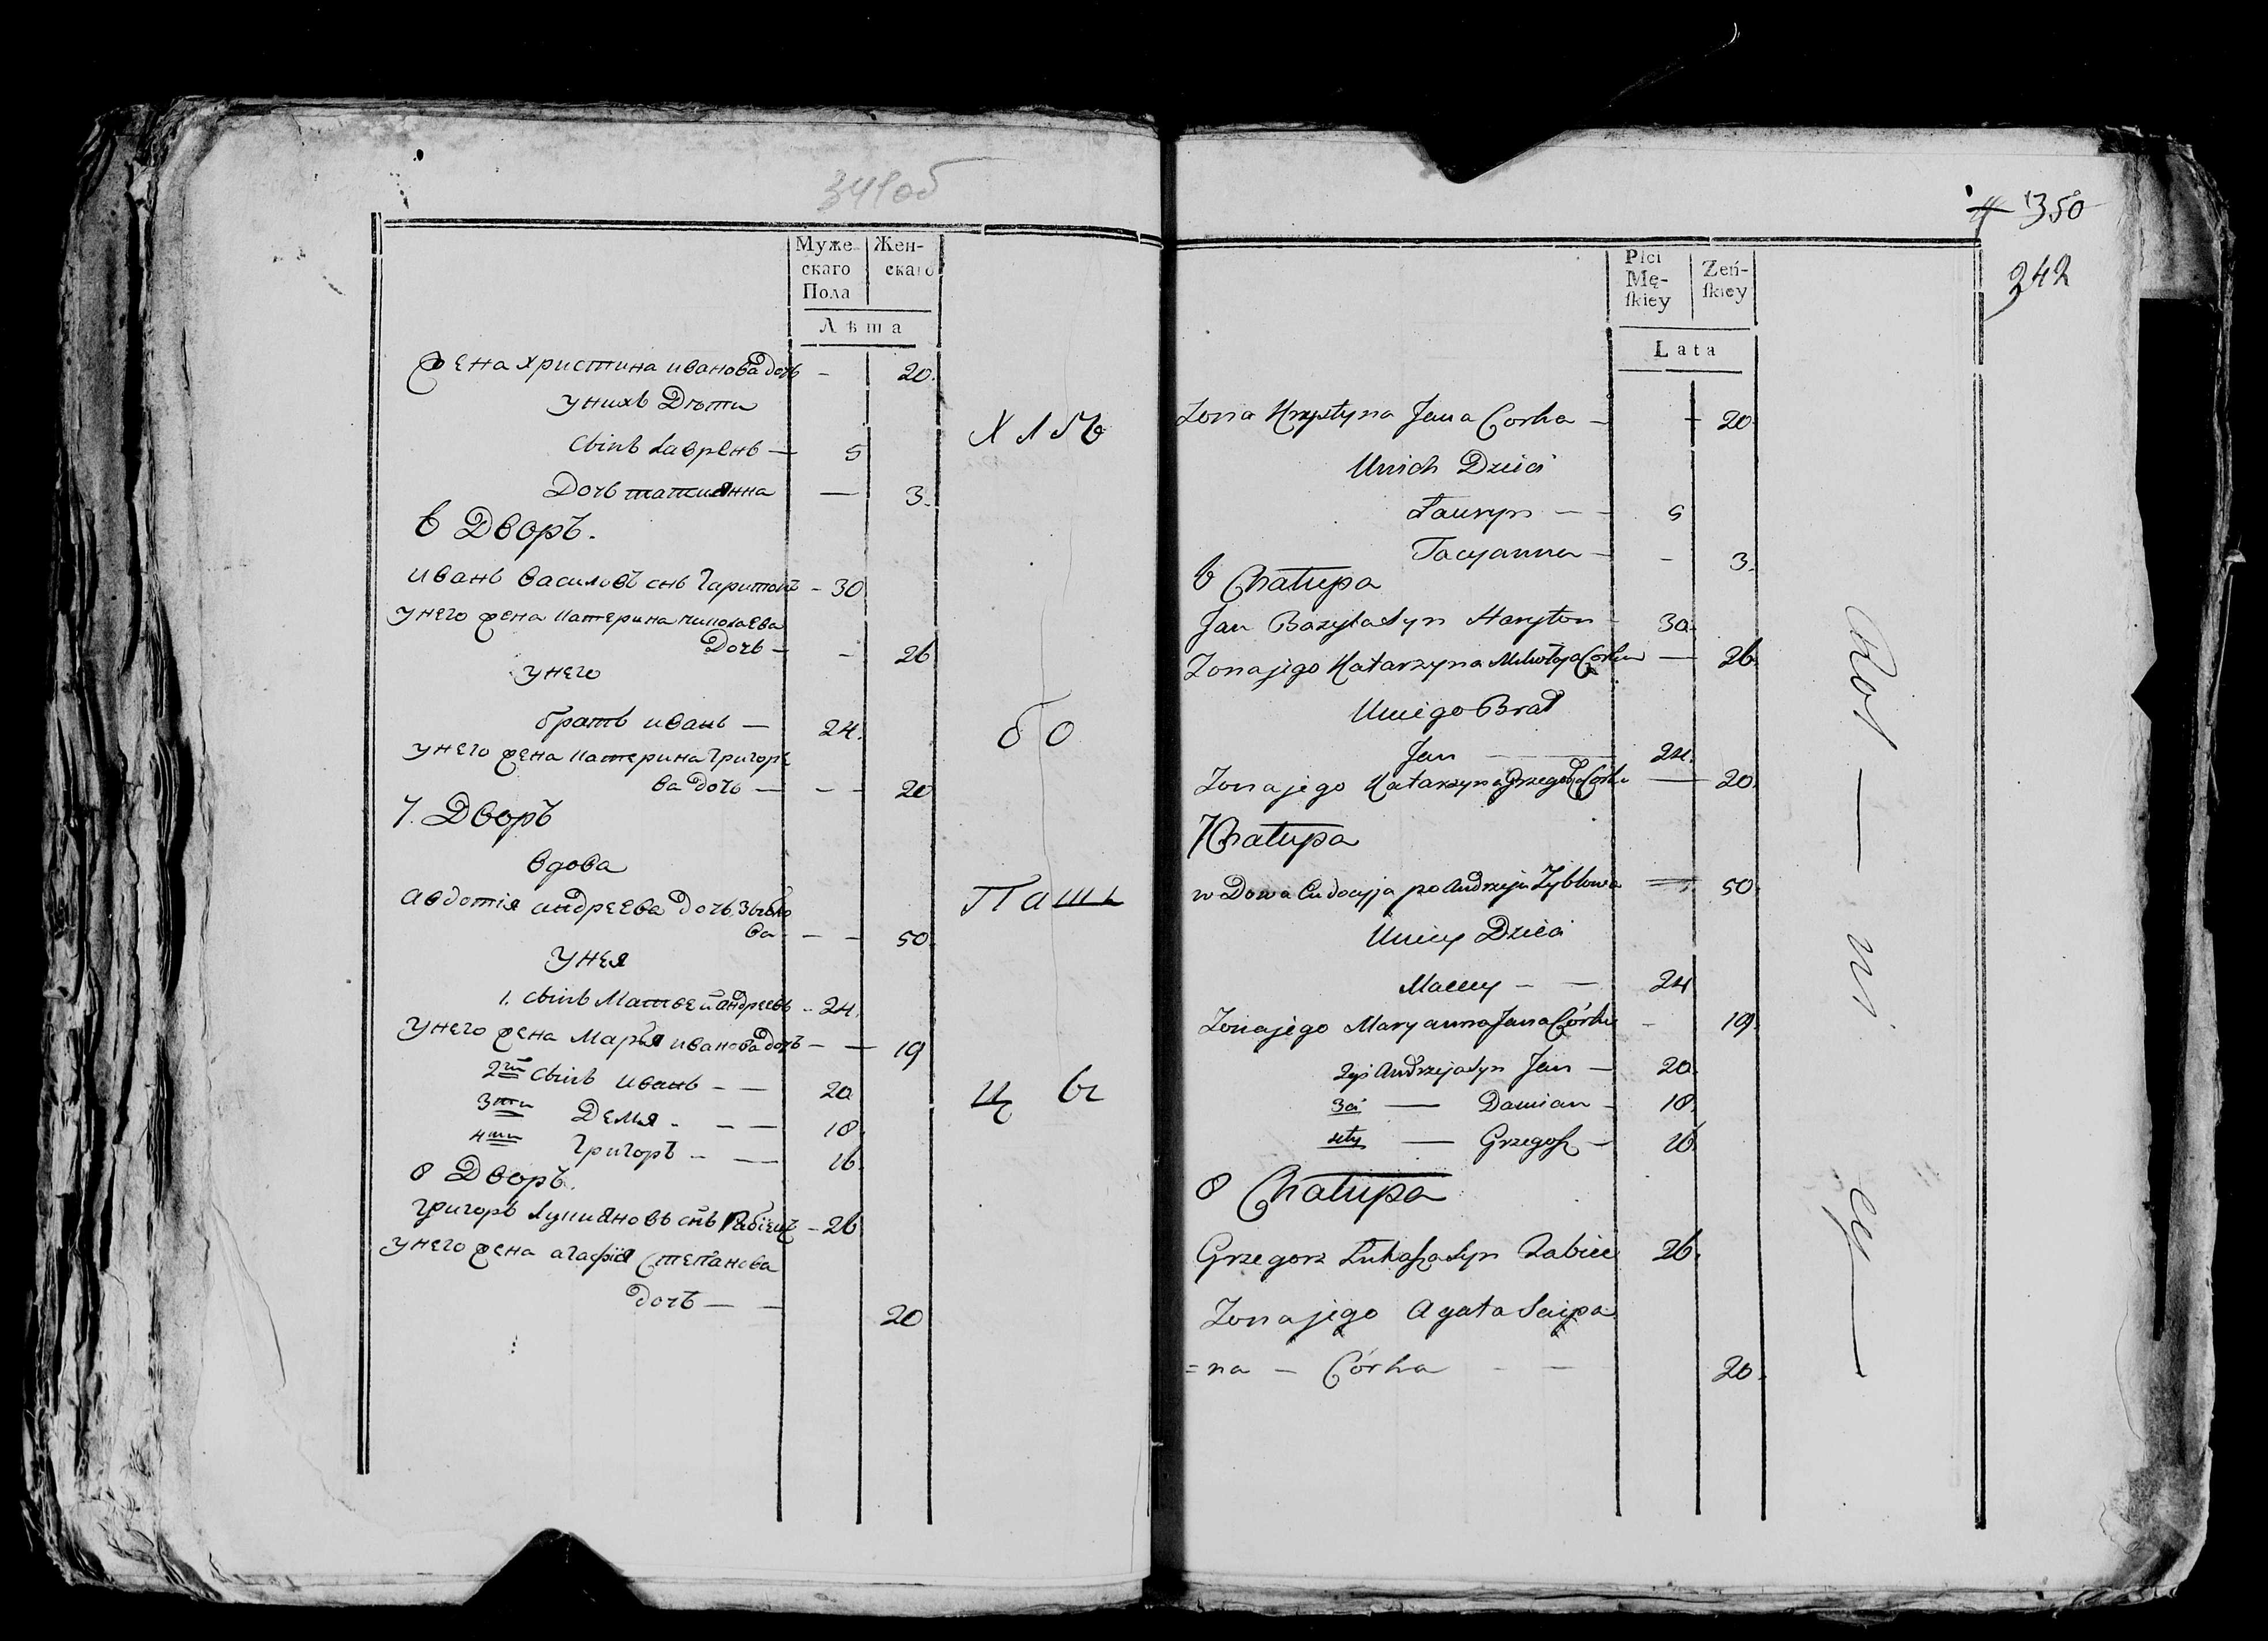 341об
Муже-
скаго
Пола
Жен-
скаго
Лѣта
Жена Христина иванова дочь - 20.
унихъ Дѣти
Сынъ Лавренъ — 5
Дочь татиянна — 3.
6 Дворъ.
иванъ Василовъ снъ Гаритонъ - 30
унего жена Катерина николаева
Дочь — - 26
унего
братъ иванъ — 24.
унего жена Катерина Григорє
ва дочь — - - 20
7. Дворъ
вдова
авдотія андреева дочь Зыбло
ва - — — 50.
унея
1. сынъ Матвей андреевъ - 24.
унего жена Марья иванова дочь — — 19
2й сынъ иванъ - — 20
3ти Демя - — — 18.
4ти Григоръ - — 16.
8 Дворъ.
Григоръ Лукияновъ снъ Рабіецъ - 26
унего жена агафія Степанова
дочь — — 20
Хлѣ
бо
Паш
ц ы
350
342
Płci
Mę-
ſkiey
Żeń-
ſkiey
Lata
Zona Krystyna Jana Corka — 20
Unich Dzieci
Ławryn — — 5
Tacyanna — - 3.
6 Chałupa
Jan Bazyla Syn Haryton - 30.
Zona jego Katarzyna Mikołaja Corka — 26.
Uniego Brat
Jan — 24.
Zona jego Katarzyna Grzegorza Córka — 20.
7 Chałupa
w Dowa Eudocyja po Andrzeju Zybłowa — 50.
Uniey Dzieci
Maciey — — 24
Zona jego Maryanna Jana Córka - 19.
2gi Andrzeja Syn Jan — 20.
3ci — Damian - 18.
4ty — Grzegosz — 16.
8 Chałupa
Grzegorz Łukasza Syn Rabiec 26.
Zona jego Agata Sciepa
=na — Córka - — 20.
Rol — ni cy —